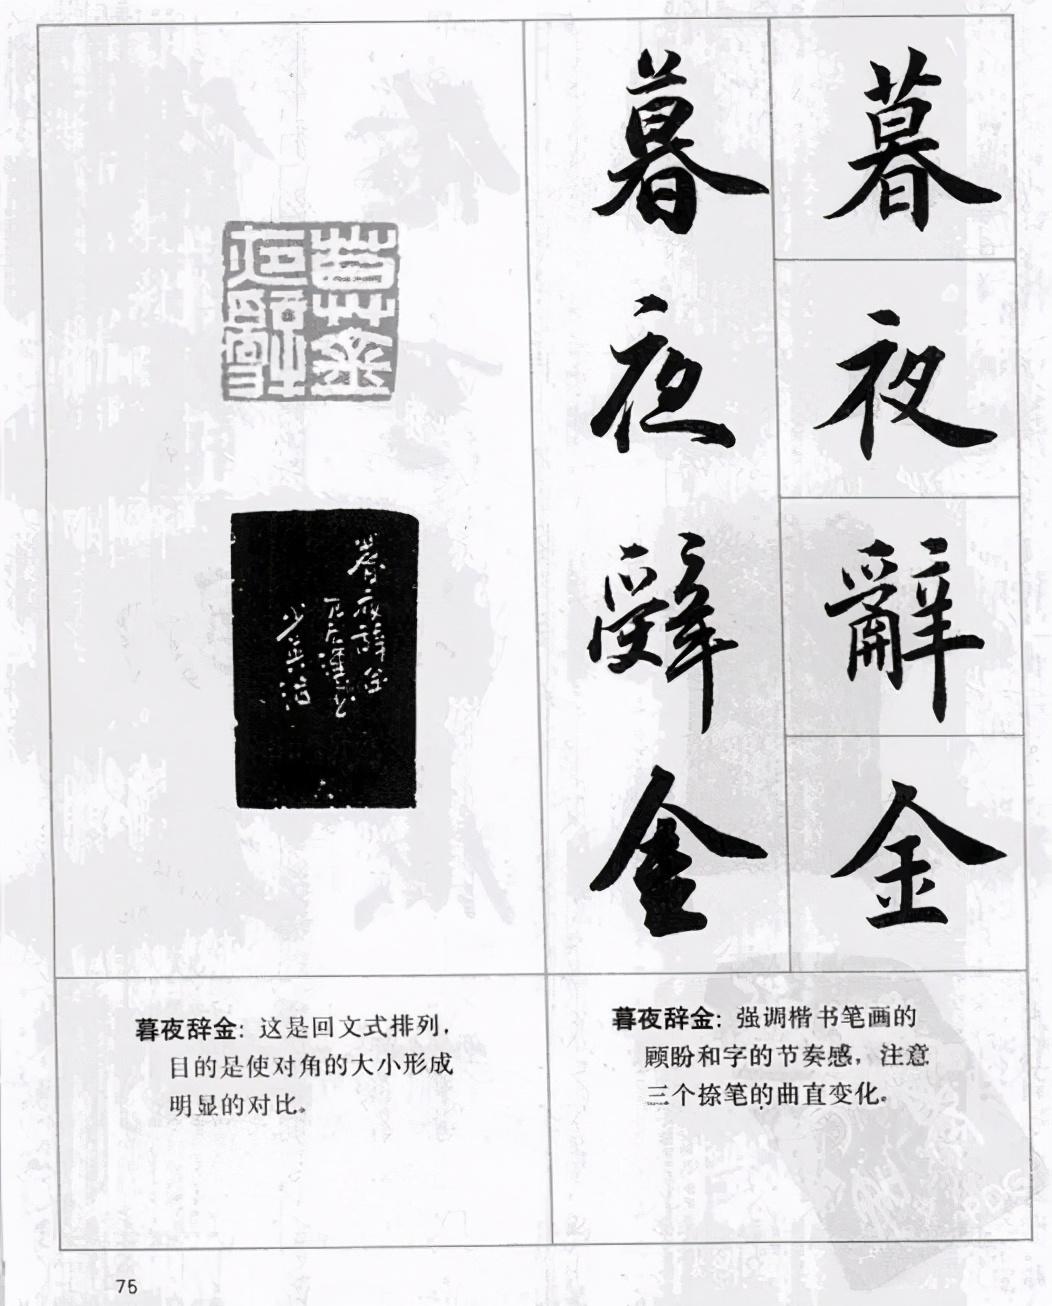 暮 暮
夜 夜
辭 辭
金 金
暮夜辭金
少英治
暮夜辞金：这是回文式排列，
目的是使对角的大小形成
明显的对比。
暮夜辞金：强调楷书笔画的
顾盼和字的节奏感，注意
三个捺笔的曲直变化。
75